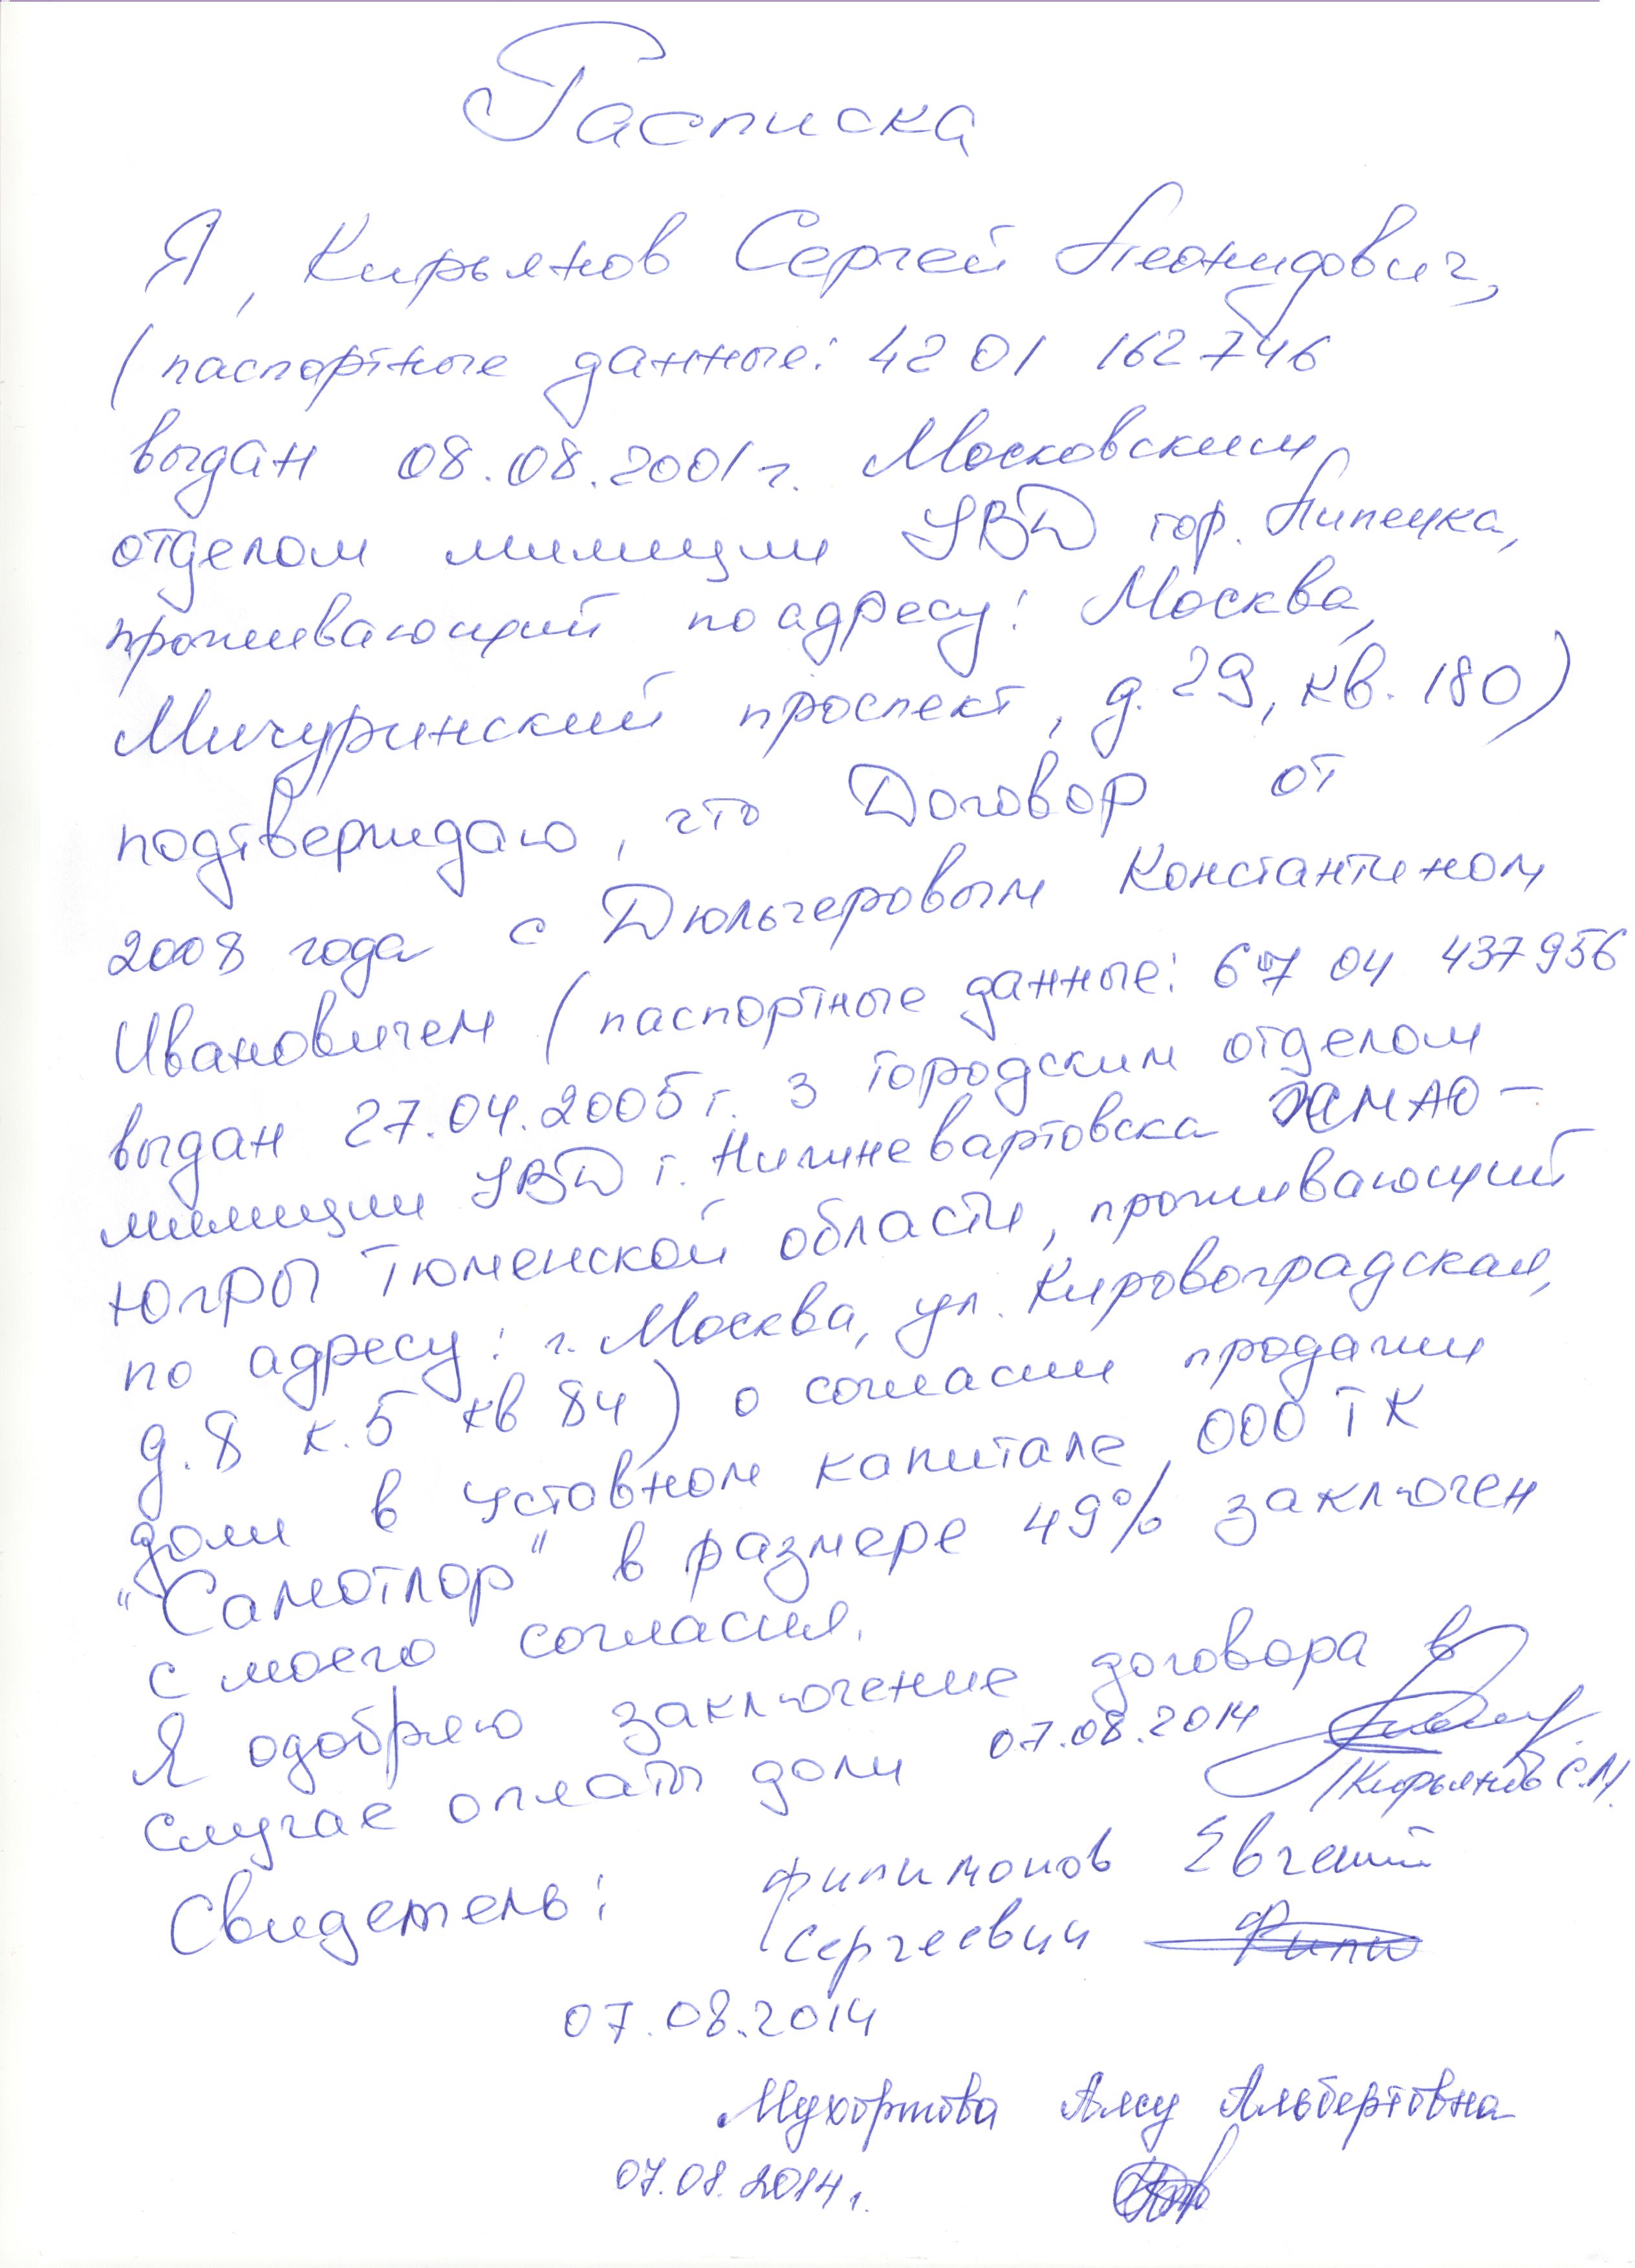 Расписка
Я, Кирьянов Сергей Леонидович,
(паспортные данные: 42 01 162746
выдан 08.08.2001г. Московским
отделом милиции УВД гор. Липецка,
проживающий по адресу: Москва,
Мичуринский проспект, д. 29, кв. 180)
подтверждаю, что Договор от
2008 года с Дюльгеровым Константином
Ивановичем (паспортные данные: 67 04 437956
выдан 27.04.2005г. 3 городским отделом
милиции УВД г. Нижневартовска ХМАО-
Югры Тюменской области, проживающий
по адресу: г. Москва, ул. Кировоградская,
д. 8 к. 5 кв 84) о согласии продажи
доли в уставном капитале ООО ТК
"Самотлор" в размере 49% заключен
с моего согласия.
Я одобряю заключение договора в
случае оплаты доли 07.08.2014
/Кирьянов С.Л.
Свидетель: Филимонов Евгений
Сергеевич Фили
07.08.2014
Мухортова Алсу Альбертовна
07.08.2014г.